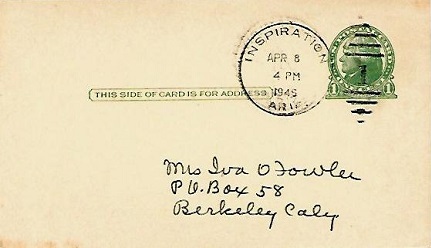 INSPIRATION
APR 8
4 PM
1949
ARIZ.
1 1
THIS SIDE OF CARD IS FOR ADDRESS
Mrs Iva O Fowler
P.O. Box 58
Berkeley Caly